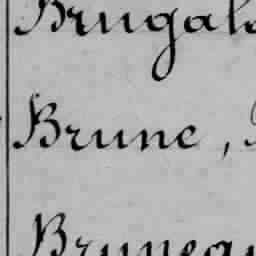 Brugal
Brune,
Brunea